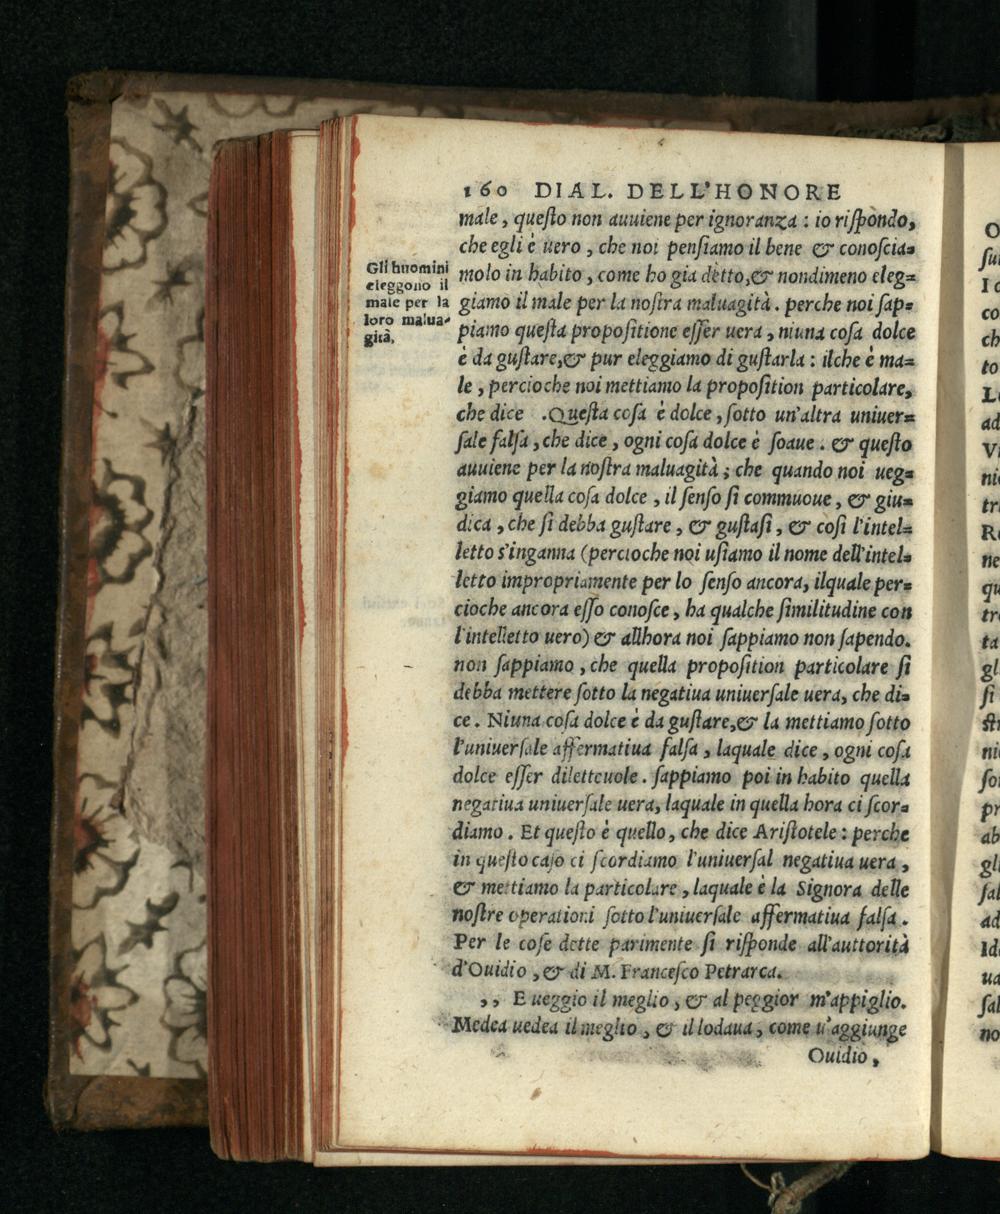 160 DIAL. DELL'HONORE
male, queſto non auuiene per ignoranza : io riſpondo,
che egli è uero, che noi penſiamo il bene & conoſcia=
molo in habito, come ho gia detto,& nondimeno eleg=
giamo il male per la noſtra maluagità. perche noi ſap=
piamo queſta propoſitione eſſer uera, niuna coſa dolce
è da guſtare,& pur eleggiamo di guſtarla : ilche è ma=
le, percioche noi mettiamo la propoſition particolare,
che dice .Queſta coſa è dolce, ſotto un'altra uniuer=
ſale falſa, che dice, ogni coſa dolce è ſoaue. & queſto
auuiene per la noſtra maluagità; che quando noi ueg=
giamo quella coſa dolce, il ſenſo ſi commuoue, & giu=
dica, che ſi debba guſtare, & guſtaſi, & coſi l'intel=
letto s'inganna (percioche noi uſiamo il nome dell'intel=
letto impropriamente per lo ſenſo ancora, ilquale per=
cioche ancora eſſo conoſce, ha qualche ſimilitudine con
l'intelletto uero) & allhora noi ſappiamo non ſapendo.
non ſappiamo, che quella propoſition particolare ſi
debba mettere ſotto la negatiua uniuerſale uera, che di=
ce. Niuna coſa dolce è da guſtare,& la mettiamo ſotto
l'uniuerſale affermatiua falſa, laquale dice, ogni coſa
dolce eſſer diletteuole. ſappiamo poi in habito quella
negatiua uniuerſale uera, laquale in quella hora ci ſcor=
diamo. Et queſto è quello, che dice Ariſtotele : perche
in queſto caſo ci ſcordiamo l'uniuerſal negatiua uera,
& mettiamo la particolare, laquale è la Signora delle
noſtre operationi ſotto l'uniuerſale affermatiua falſa.
Per le coſe dette parimente ſi riſponde all'auttorità
d'Ouidio, & di M. Franceſco Petrarca.
,, E ueggio il meglio, & al peggior m'appiglio.
Medea uedea il meglio, & il lodaua, come u'aggiunge
Ouidio,
Gli huomini
eleggono il
male per la
loro malua-
gità,
O
I
co
ch
to
ad
tr
ne
qu
ta
gl
ſi
ni
pr
ab
gl
ad
ua
no